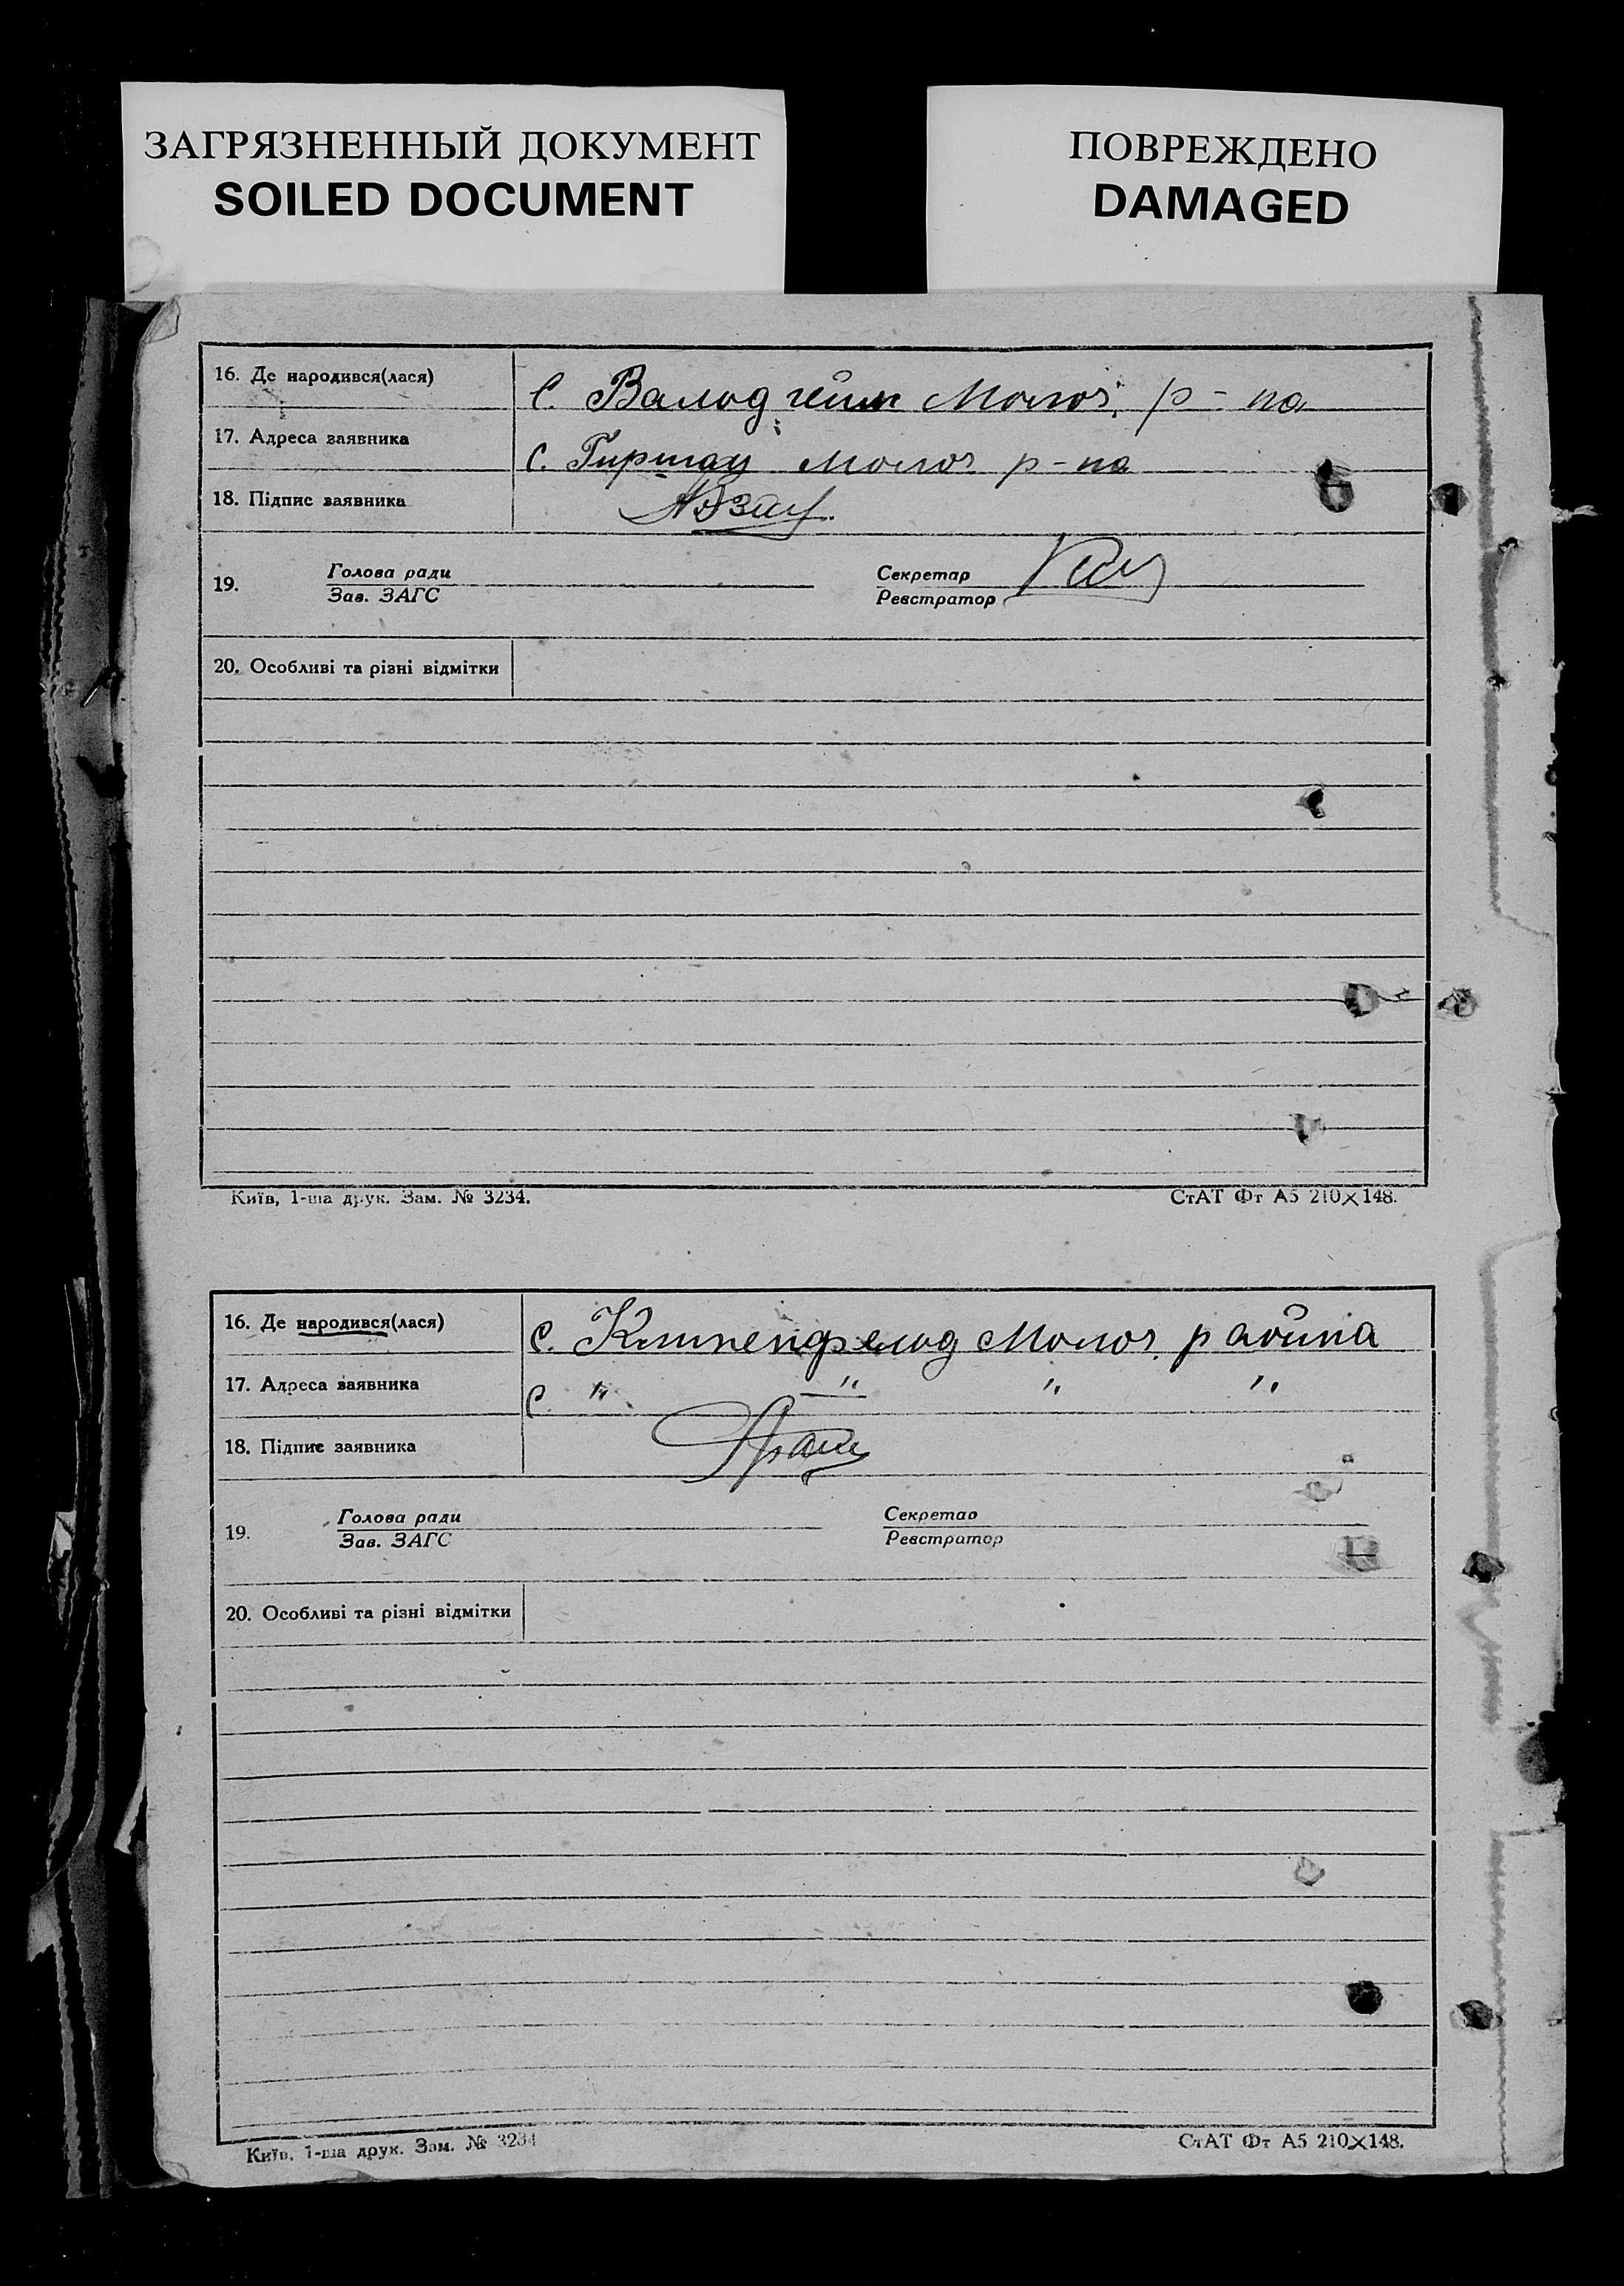 ЗАГРЯЗНЕННЫЙ ДОКУМЕНТ
SOILED DOCUMENT
ПОВРЕЖДЕНО
DAMAGED
16. Де народився(лася) с. Валодгейм Молоч. р-на
17. Адреса заявника с. Гиршау Молоч р-на
18. Підпис заявника
19. Голова ради Секретар
Зав. ЗАГС Реєстратор
20. Особливі та різні відмітки
Київ, 1-ша друк. Зам. № 3234. СтАТ Фт А5 210×148.
16. Де народився(лася) с. Клипенфельд Молоч. района
17. Адреса заявника с. " " " "
18. Підпис заявника
19. Голова ради Секретар
Зав. ЗАГС Реєстратор
20. Особливі та різні відмітки
Київ, 1-ша друк. Зам. № 3234 СтАТ Фт А5 210×148.